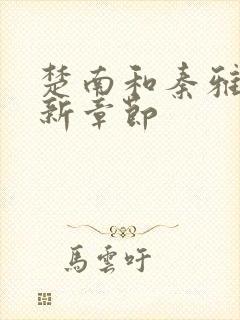 楚南和秦雅
新章節
馬雲吁